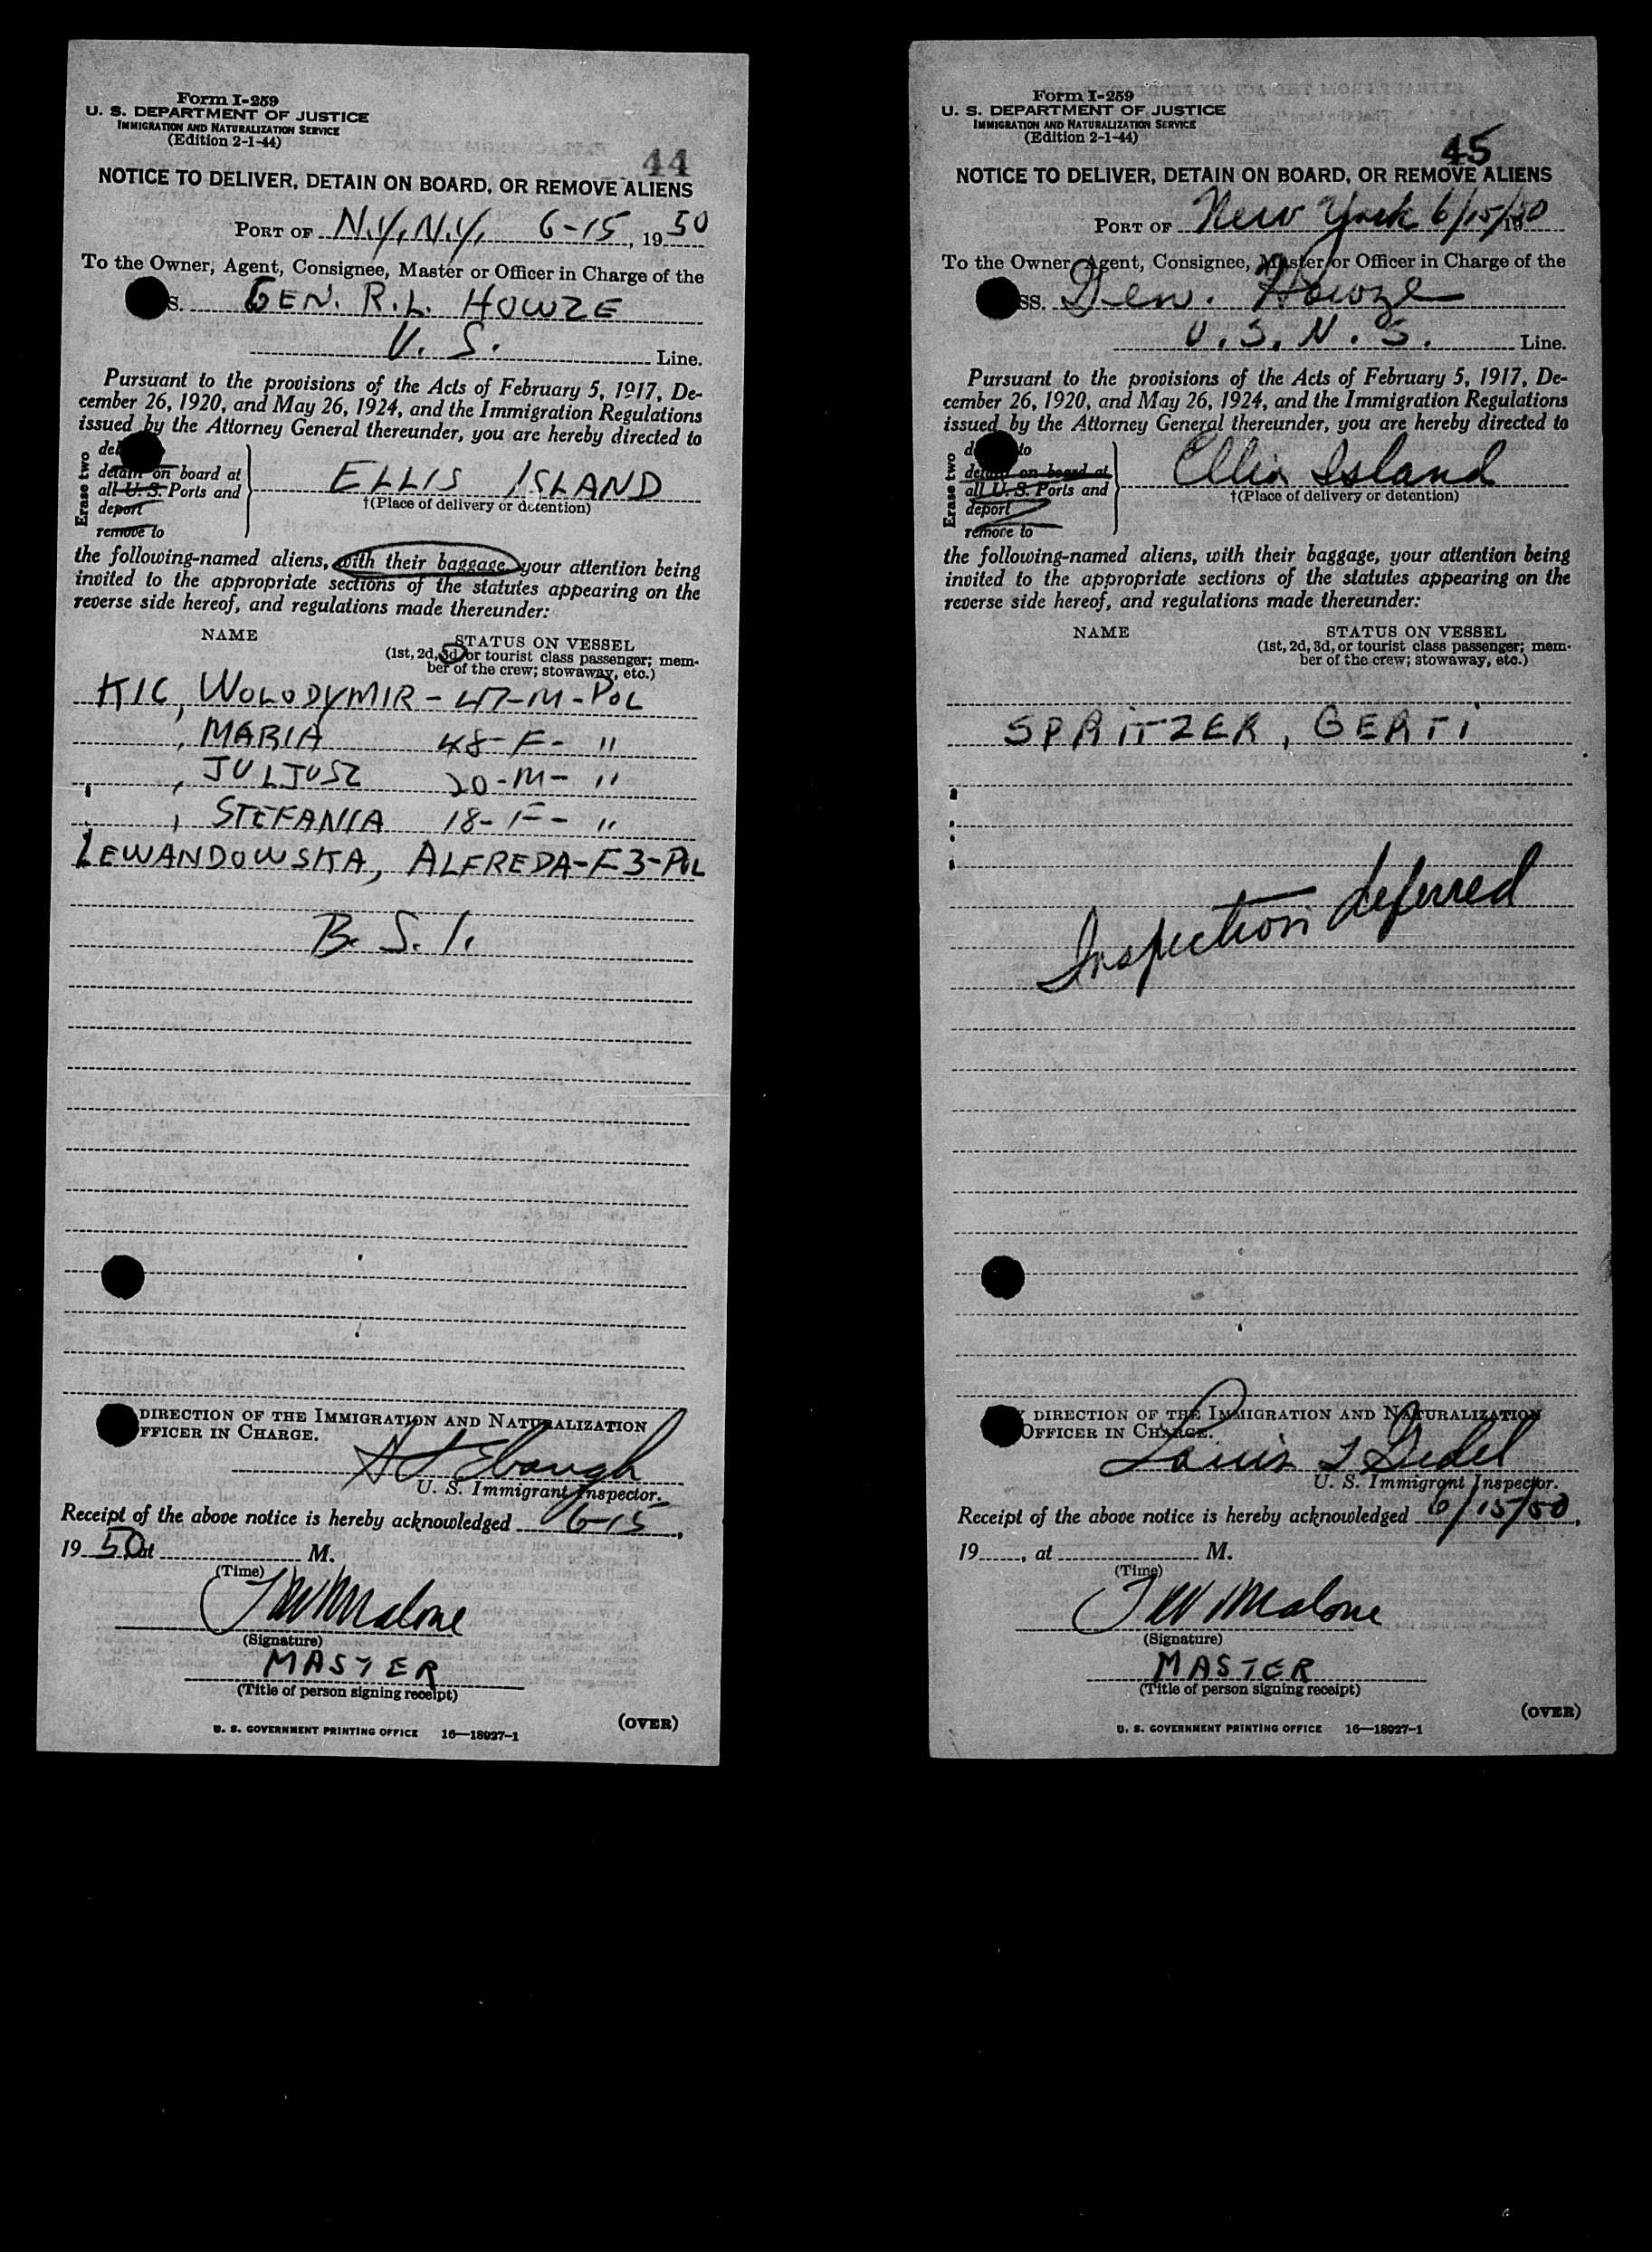 Form I-259
U. S. DEPARTMENT OF JUSTICE
IMMIGRATION AND NATURALIZATION SERVICE
(Edition 2-1-44)
44
NOTICE TO DELIVER, DETAIN ON BOARD, OR REMOVE ALIENS
PORT OF N.Y. N.Y. 6-15, 1950
To the Owner, Agent, Consignee, Master or Officer in Charge of the
S. GEN. R.L. HOWZE
U. S. Line.
Pursuant to the provisions of the Acts of February 5, 1917, De-
cember 26, 1920, and May 26, 1924, and the Immigration Regulations
issued by the Attorney General thereunder, you are hereby directed to
Erase two
detain on board at
all U. S. Ports and
deport
remove to
ELLIS ISLAND
†(Place of delivery or detention)
the following-named aliens, with their baggage, your attention being
invited to the appropriate sections of the statutes appearing on the
reverse side hereof, and regulations made thereunder:
NAME STATUS ON VESSEL
(1st, 2d, 3d, or tourist class passenger; mem-
ber of the crew; stowaway, etc.)
KIC, WOLODYMIR - 47-M-POL
, MARIA 48-F- "
, JULJUSZ 20-M- "
, STEFANIA 18-F- "
LEWANDOWSKA, ALFREDA-F3-POL
B. S. I.
DIRECTION OF THE IMMIGRATION AND NATURALIZATION
OFFICER IN CHARGE.
Ebaugh
U. S. Immigrant Inspector.
Receipt of the above notice is hereby acknowledged 6-15,
1950 at M.
(Time)
Malone
(Signature)
MASTER
(Title of person signing receipt)
(OVER)
U. S. GOVERNMENT PRINTING OFFICE 16—18927-1
Form I-259
U. S. DEPARTMENT OF JUSTICE
IMMIGRATION AND NATURALIZATION SERVICE
(Edition 2-1-44)
45
NOTICE TO DELIVER, DETAIN ON BOARD, OR REMOVE ALIENS
PORT OF New York 6/15/50 19
To the Owner, Agent, Consignee, Master or Officer in Charge of the
SS. Gen. Howze
U. S. N. S. Line.
Pursuant to the provisions of the Acts of February 5, 1917, De-
cember 26, 1920, and May 26, 1924, and the Immigration Regulations
issued by the Attorney General thereunder, you are hereby directed to
Erase two
to
detain on board at
all U. S. Ports and
deport
remove to
Ellis Island
†(Place of delivery or detention)
the following-named aliens, with their baggage, your attention being
invited to the appropriate sections of the statutes appearing on the
reverse side hereof, and regulations made thereunder:
NAME STATUS ON VESSEL
(1st, 2d, 3d, or tourist class passenger; mem-
ber of the crew; stowaway, etc.)
SPRITZER, GERTI
Inspection deferred
DIRECTION OF THE IMMIGRATION AND NATURALIZATION
OFFICER IN CHARGE.
Louis
U. S. Immigrant Inspector.
Receipt of the above notice is hereby acknowledged 6/15/50,
19, at M.
(Time)
Malone
(Signature)
MASTER
(Title of person signing receipt)
(OVER)
U. S. GOVERNMENT PRINTING OFFICE 16—18927-1